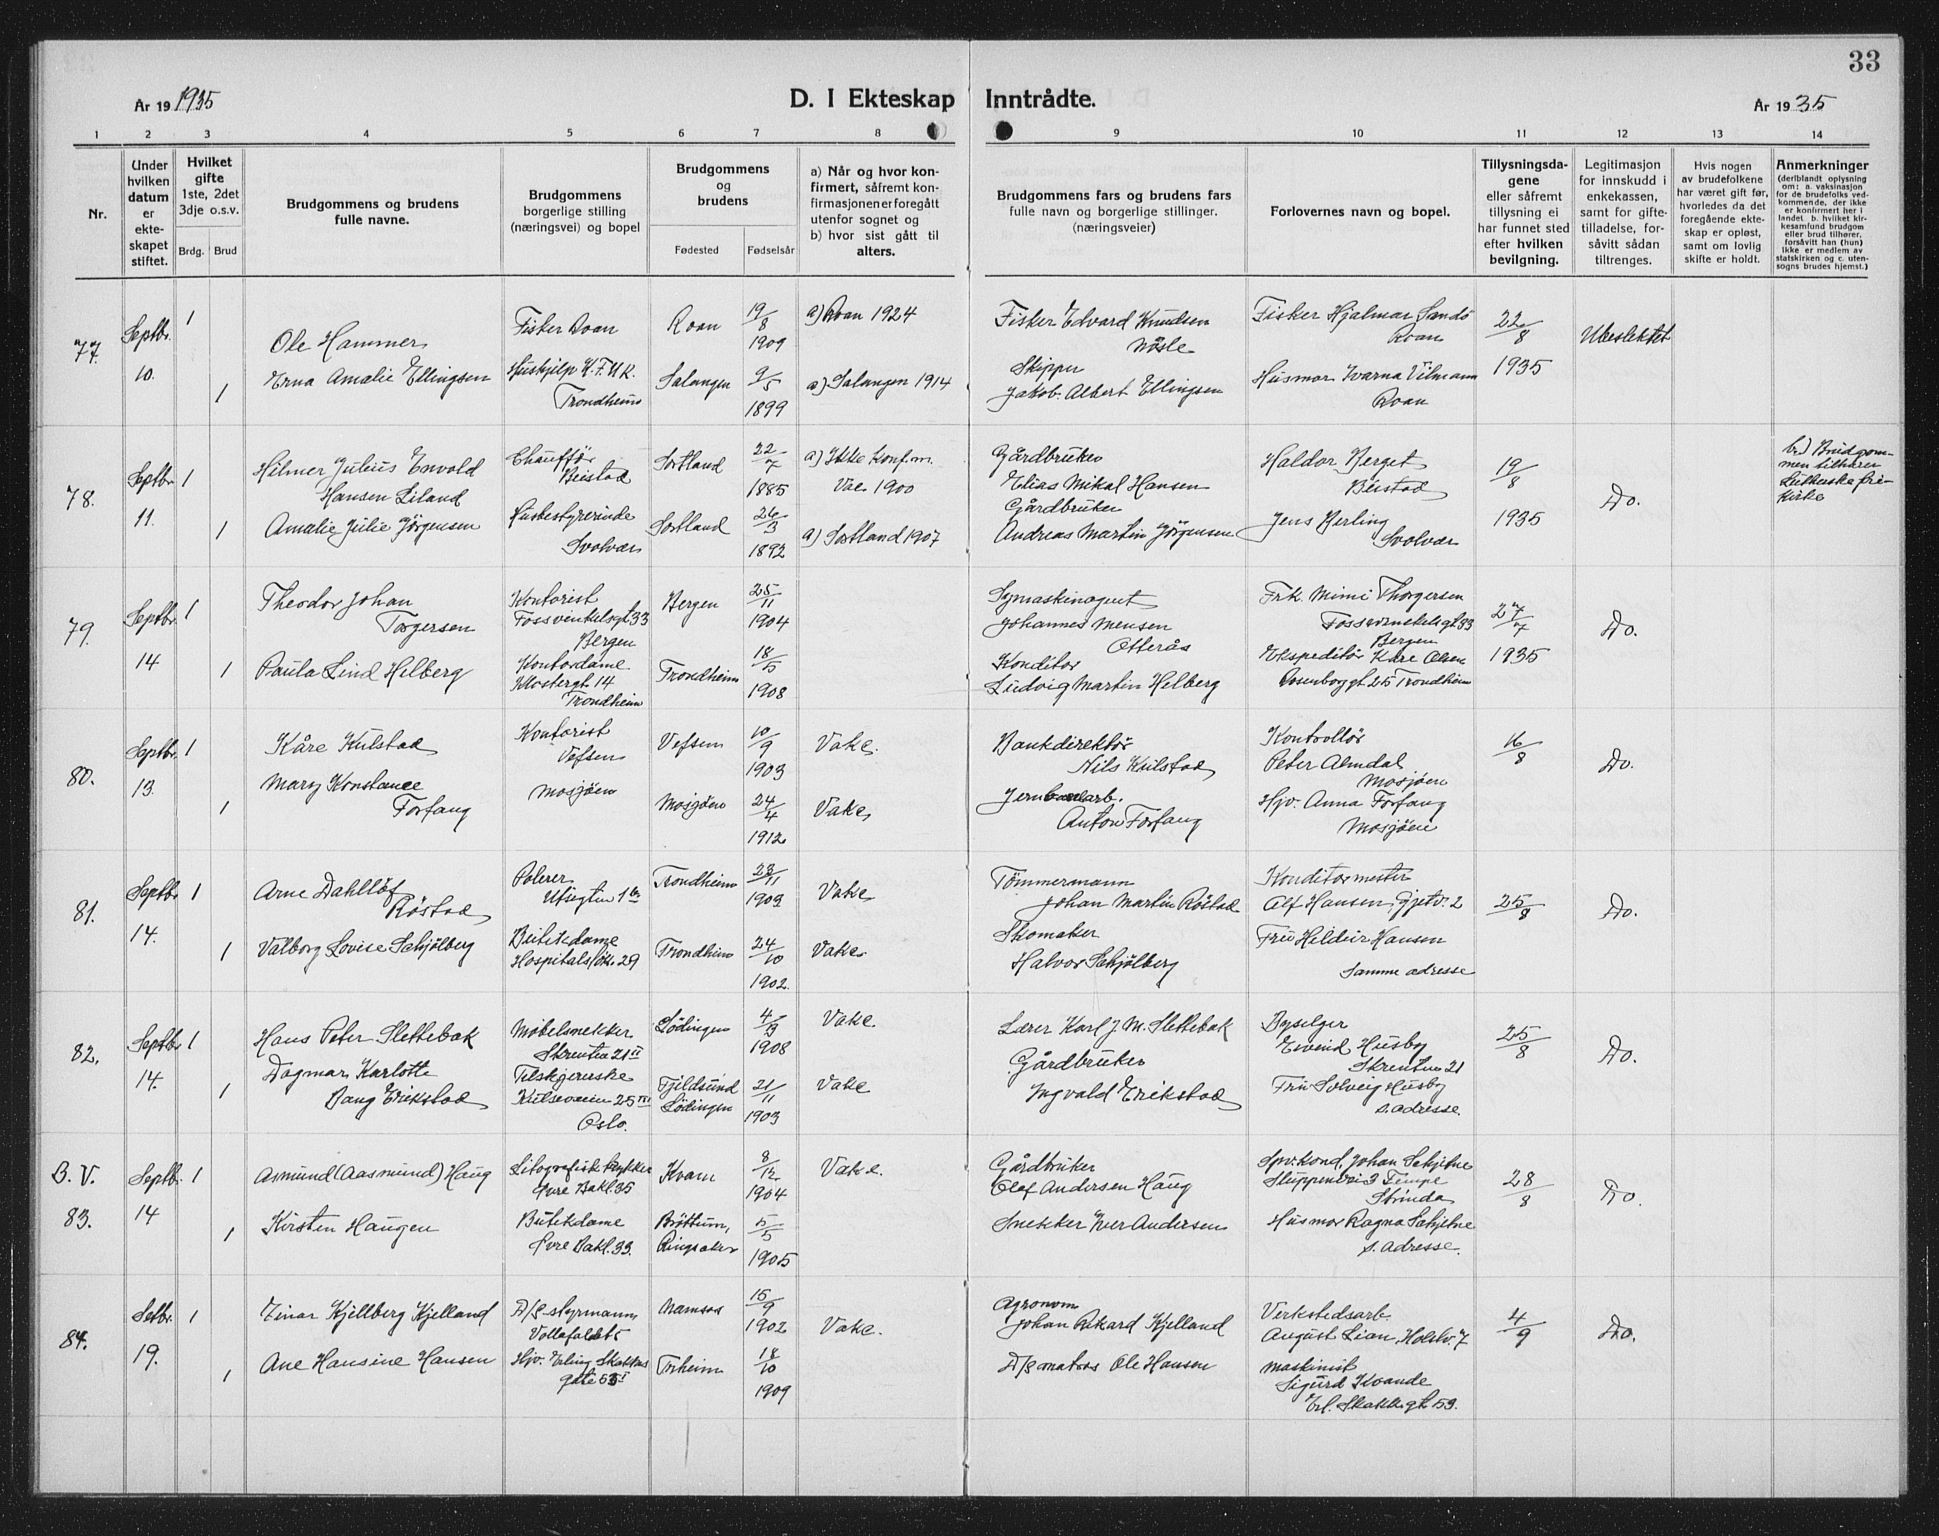 33
År 19 1935
D. I Ekteskap Inntrådte.
År 19 35
1 2 3 4 5 6 7 8 9 10 11 12 13 14
Nr.
Under hvilken datum er ekteskapet stiftet.
Hvilket gifte
1ste, 2det 3dje o.s.v.
Brdg. Brud
Brudgommens og brudens fulle navne.
Brudgommens borgerlige stilling (næringsvei) og bopel
Brudgommens og brudens
Fødested Fødselsår
a) Når og hvor konfirmert, såfremt konfirmasjonen er foregått utenfor sognet og
b) hvor sist gått til alters.
Brudgommens fars og brudens fars fulle navn og borgerlige stillinger. (næringsveier)
Forlovernes navn og bopel.
Tillysningsdagene eller såfremt tillysning ei har funnet sted efter hvilken bevilgning.
Legitimasjon for innskudd i enkekassen, samt for giftetilladelse, forsåvitt sådan tiltrenges.
Hvis nogen av brudefolkene har været gift før, hvorledes da det foregående ekteskap er opløst, samt om lovlig skifte er holdt.
Anmerkninger
(deriblandt oplysning om: a. vaksinasjon for de brudefolks vedkommende, der ikke er konfirmert her i landet. b. hvilket kirkesamfund brudgom eller brud tilhører, forsåvitt han (hun) ikke er medlem av statskirken og c. utensogns brudes hjemst.)
77. Septbr. 10. 1
Ole Hammer
Fisker Roan
Roan 19/8 1909
a) Roan 1924
Fisker Edvard Knudsen Nösle
Fisker Hjalmar Sandö Roan
22/8 1935
Ubeslektet
1
Erna Amalie Ellingsen
Hushjelp K.F.U.K. Trondheim
Salangen 9/5 1899
a) Salangen 1914
Skipper
Jakob Albert Ellingsen
Husmor Ivarna Vilmann Roan
78. Septbr. 11. 1
Hilmer Julius Envold
Hansen Liland
Chauffør Beistad
Sortland 22/7 1885
a) Ikke konfirm. Vac 1900
Gårdbruker
Elias Mikal Hansen
Haldor Berget Beistad
19/8 1935
Do.
b.) Brudgommen tilhører Lutherske frikirke
1
Amalie Julie Jörgensen
Husbestyrerinde Svolvær
Sortland 26/3 1892
a) Sortland 1907
Gårdbruker
Andreas Martin Jörgensen
Jens Berling Svolvær
79. Septbr. 14 1
Theodor Johan Torgersen
Kontorist
Fossvinkelsgt 33
Bergen
Bergen 25/11 1904
Symaskinagent
Johannes Mensen Otterås
Frk. Mimi Thorgersen
Fossvinckelsgt 33
Bergen
27/7 1935
Do.
1
Paula Lind Helberg
Kontordame
Klostergt. 14
Trondheim
Trondheim 18/5 1908
Konditor
Ludvig Martin Helberg
Ekspeditör Kåre Olsen
Rosenborggt 25 Trondheim
80. Septbr. 13. 1
Kåre Kulstad
Kontorist Vefsen
Vefsen 10/9 1903
Vake.
Bankdirektör
Nils Kulstad
Kontrollör
Peter Almdal
Mosjöen
16/8
Do.
1
Mary Konstance Forfang
Mosjöen
Mosjöen 24/4 1912
Vake
Jernbanearb.
Anton Forfang
Hjv. Anna Forfang
Mosjöen
81. Septbr. 14. 1
Arne Dahllöf Röstad
Polerer
Utsigten 1 b
Trondheim 23/11 1903
Vake
Tömmermann
Johan Martin Röstad
Konditormester
Alf Hansen, Gjetv. 2
25/8
Do.
1
Valborg Lovise Schjölberg
Butikdame
Hospitalslökk. 29
Trondheim 24/10 1902.
Vake
Skomaker
Halvor Schjölberg
Fru Hildur Hansen
Samme adresse
82. Septbr. 14. 1
Hans Peter Slettebak
Möbelsnekker
Skrenten 21 II
Lödingen 4/9 1908
Vake.
Lærer Karl J. M. Slettebak
Byselger
Eivind Husby
Skrenten 21
25/8
Do.
1
Dagmar Karlotte
Bang Erikstad
Tilskjererske
Kulseveien 25 III
Oslo.
Tjeldsund Lödingen 21/11 1903
Vake
Gårdbruker
Ingvald Erikstad
Fru Solveig Husby
s. adresse.
B. V. 83. Septbr. 14 1
Asmund (Aasmund) Haug
Litografisk trykker
Øvre Bakl. 35
Kvam 8/12 1904
Vake.
Gårdbruker
Olaf Andersen Haug
Spv.kond. Johan Schjetne
Sluppenvei 3 Tempe
Strinda
28/8
Do.
1
Kirsten Haugen
Butikdame
Øvre Bakl. 33.
Bröttum, Ringsaker 5/5 1905
Snekker Iver Andersen
Husmor Ragna Schjetne
s. adresse.
84. Setbr. 19. 1
Einar Kjellberg Kjelland
D/s-styrmann,
Vollafaldet 5
Namsos 15/9 1902
Vake.
Agronom
Johan Rikard Kjelland
Verkstedsarb.
August Lian, Holstv. 7
4/9
Do.
1
Ane Hansine Hansen
Hjv. Erling Skakkes
gate 53 I
Trheim 18/10 1909
D/s matros Ole Hansen
Maskinist
Sigurd Kvande
Erl. Skakk. gt. 53.